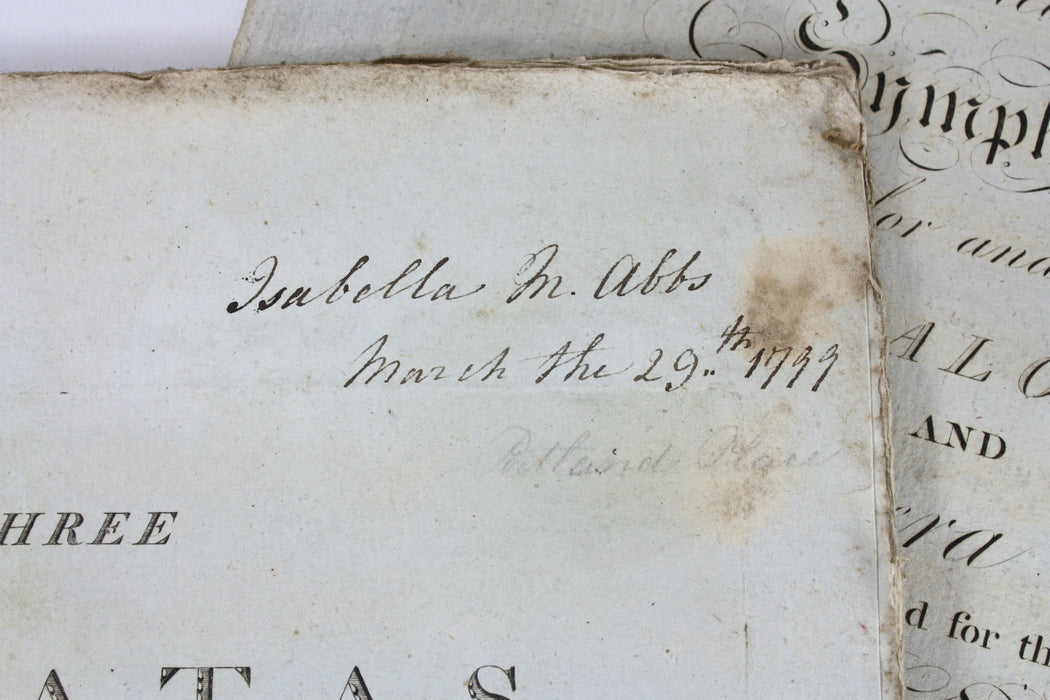 Isabella M. Abbs
March the 29.th 1799
Portland Place
HREE
ATAS
ymph
for and
ALO
AND
ra
d for th